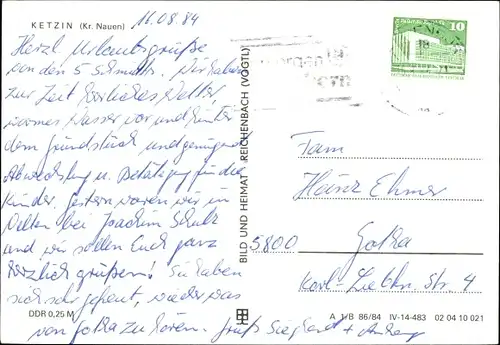 KETZIN (Kr. Nauen) 16.08.84
Herzl. Urlaubsgrüße
von den 5 Schmidts. Wir haben
zur Zeit herrliches Wetter,
warmes Wasser vor und hinter
dem Grundstück und genügend
Abwechslung u. Betätigung für die
Kinder. Gestern waren wir in
bei Joachim Schulz
und wir sollen Euch ganz
herzlich grüßen! Sie haben
sich sehr gefreut, wieder was
von Gotha zu hören. Gruß Sieghardt + Anhang
DDR 0,25 M
BILD UND HEIMAT REICHENBACH (VOGTL)
10
Fam.
Heinz Ehmer
5800 Gotha
Karl-Liebkn. Str. 4
A 1/B 86/84 IV-14-483 02 04 10 021